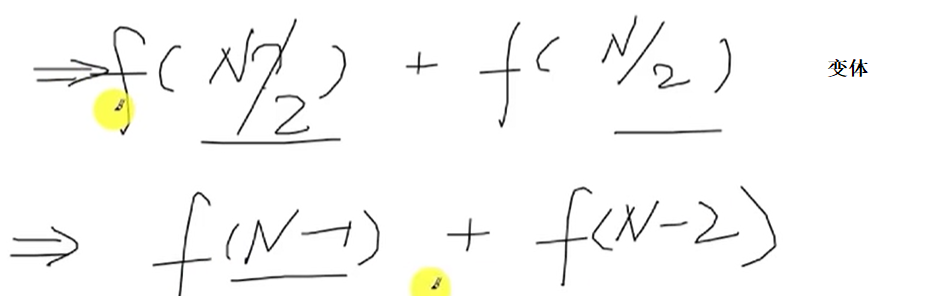 ⇒ f(N/2) + f(N/2) 变体
⇒ f(N-1) + f(N-2)